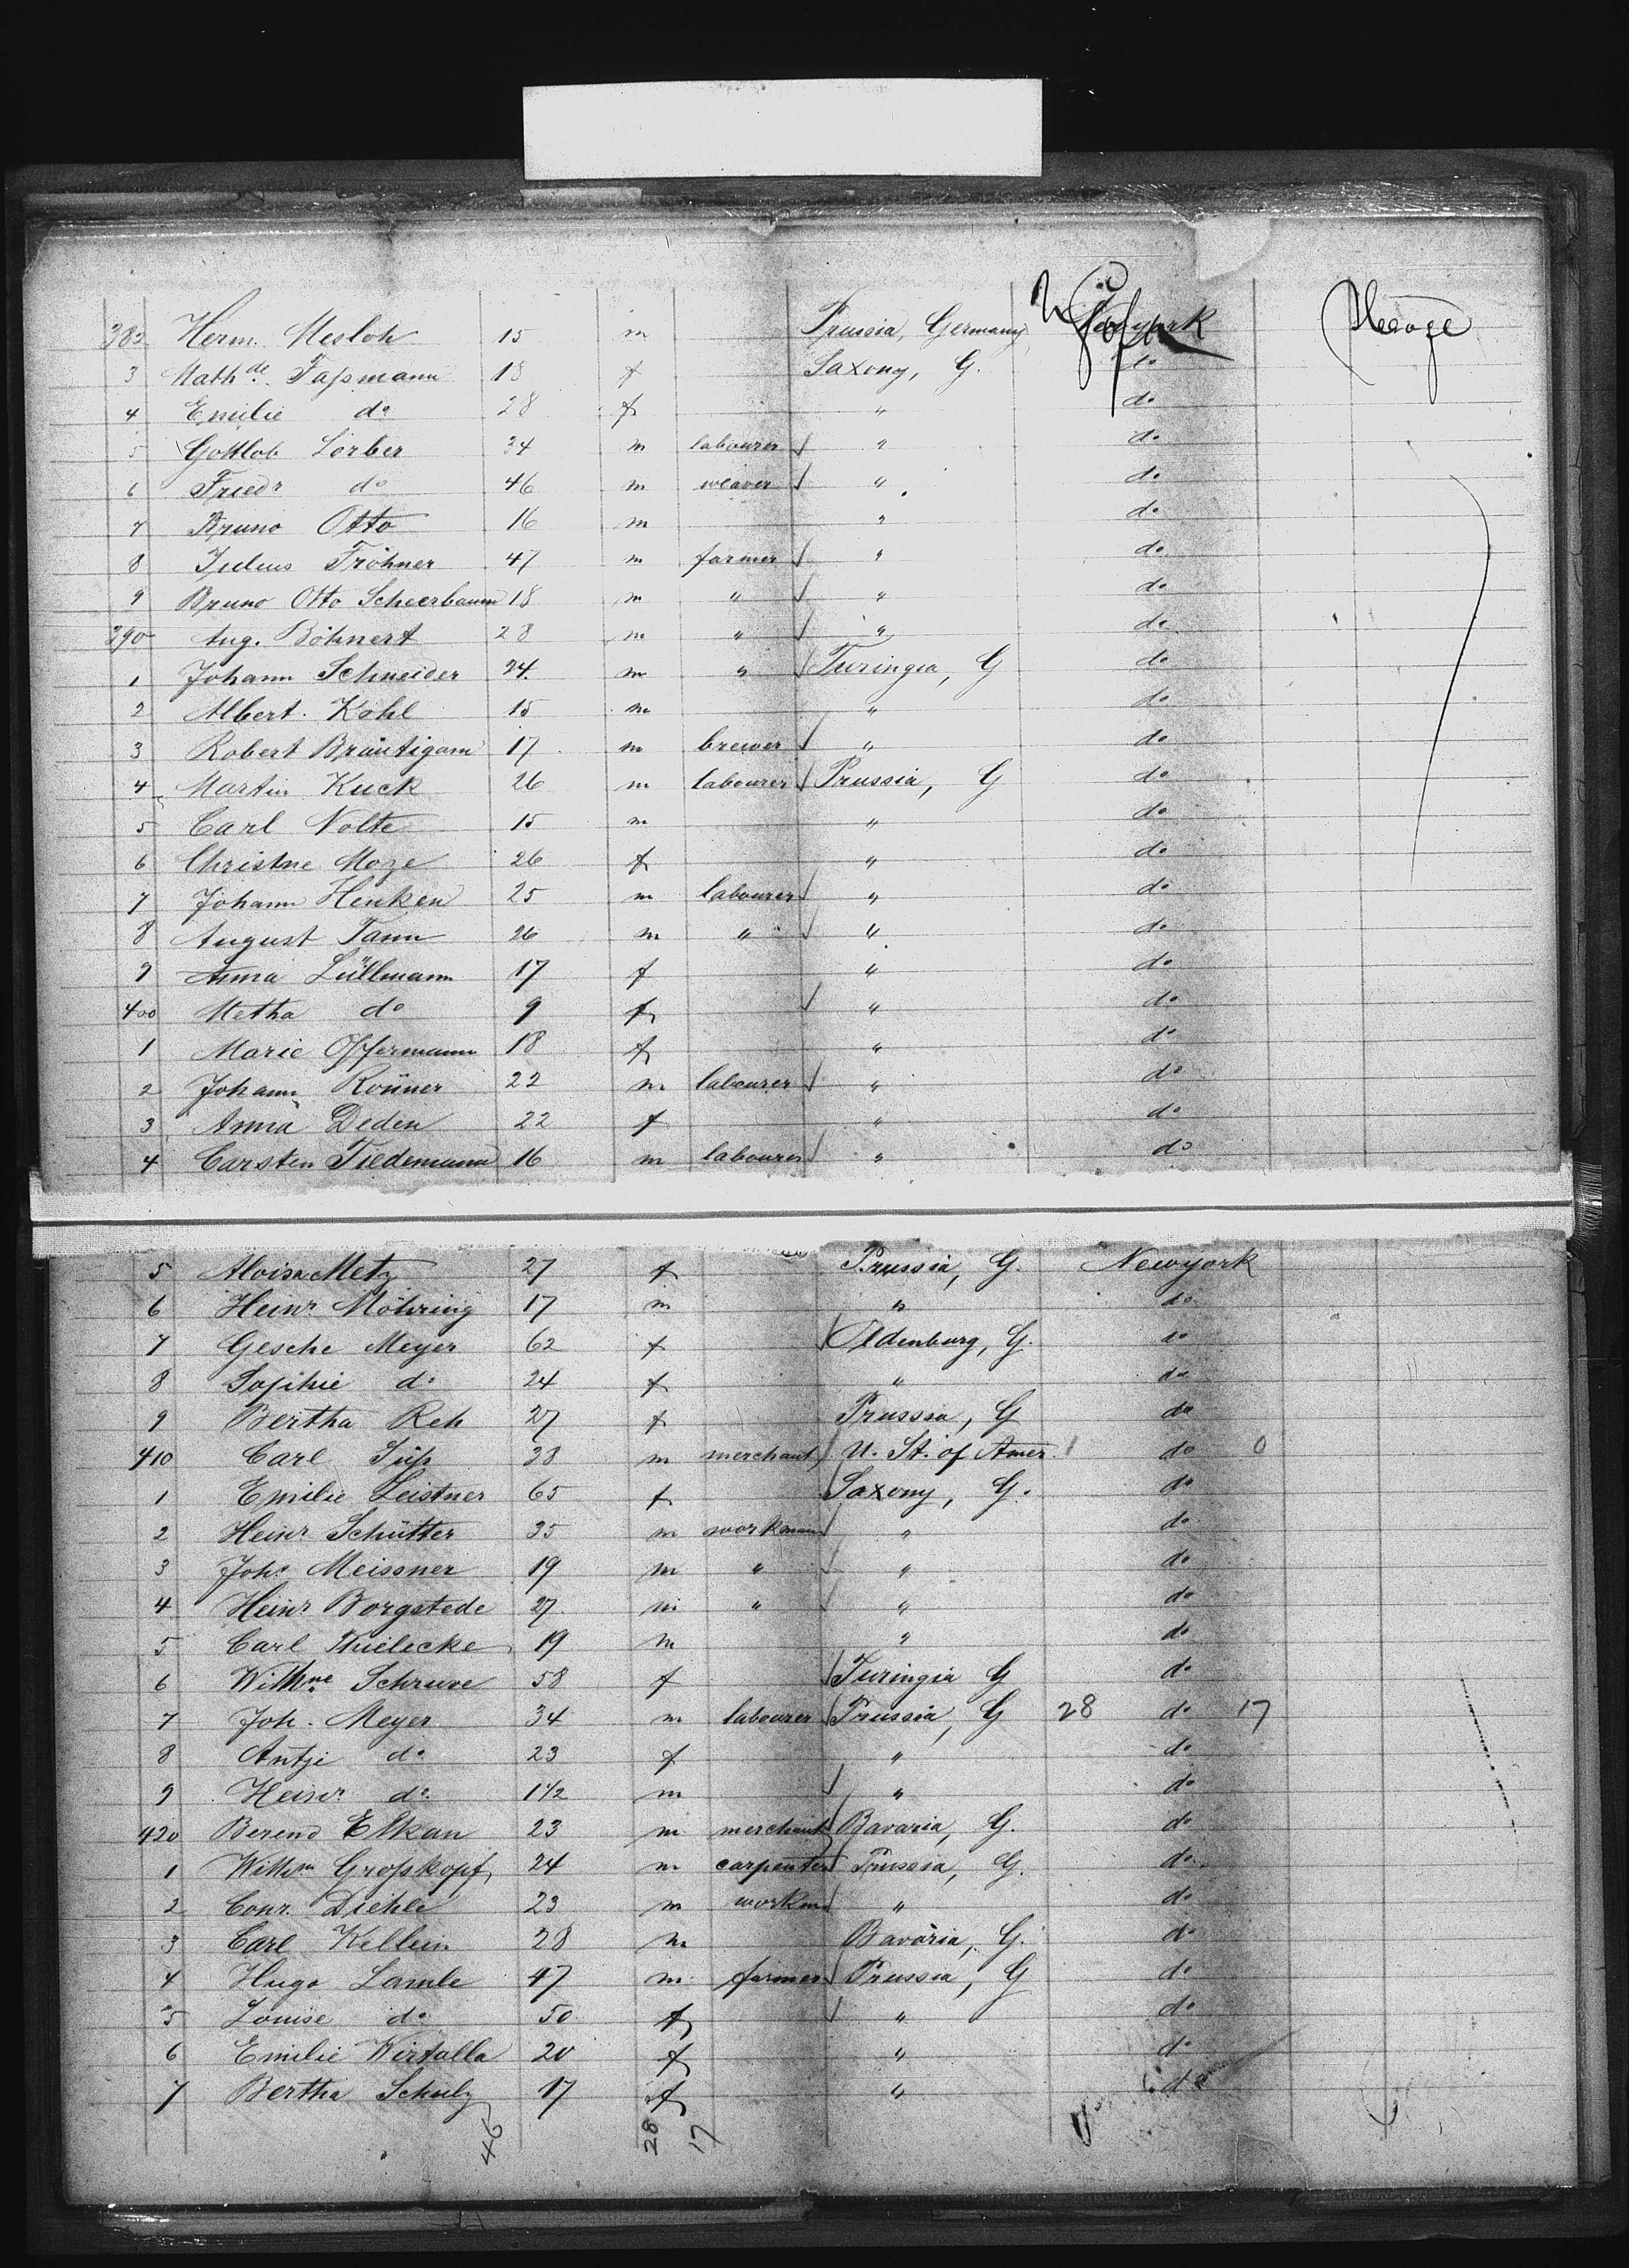 382 Herm. Mesloh 15 m Prussia, Germany Newyork Steerage
3 Mathde. Faßmann 18 f Saxony, G. do
4 Emilie do 28 f " do
5 Gottlob Lorber 34 m labourer " do
6 Friedr do 46 m weaver " do
7 Bruno Otto 16 m " do
8 Julius Fröhner 47 m farmer " do
9 Bruno Otto Scheerbaum 18 m " " do
390 Aug. Böhnert 28 m " " do
1 Johann Schneider 24 m " Turingia, G do
2 Albert Kohl 15 m " do
3 Robert Bräutigam 17 m brewer " do
4 Martin Kuck 26 m labourer Prussia, G do
5 Carl Nolte 15 m " do
6 Christne Moze 26 f " do
7 Johann Henken 25 m labourer " do
8 August Tann 26 m " " do
9 Anna Lüllmann 17 f " do
400 Metha do 9 f " do
1 Marie Offermann 18 f " do
2 Johann Rönner 22 m labourer " do
3 Anna Deden 22 f " do
4 Carsten Tiedemann 16 m labourer " do
5 Aloisa Metz 27 f Prussia, G. Newyork
6 Heinr. Möhring 17 m " do
7 Gesche Meyer 62 f Oldenburg, G. do
8 Sophie do 24 f " do
9 Bertha Reh 27 f Prussia, G do
410 Carl Süß 38 m merchant U. St. of Amer. 1 do 0
1 Emilie Leistner 65 f Saxony, G. do
2 Heinr. Schütter 35 m workman " do
3 Johs Meissner 19 m " " do
4 Heinr Borgstede 27 m " " do
5 Carl Thielecke 19 m " do
6 Wilhne Schruve 58 f Turingia G do
7 Joh. Meyer 34 m labourer Prussia, G 28 do 17
8 Antje do 23 f " do
9 Heinr. do 1 1/2 m " do
420 Berend Elkan 23 m merchant Bavaria, G. do
1 Wilhm Großkopf 24 m carpenter Prussia, G. do
2 Conr. Diehle 23 m workm " do
3 Carl Kellein 28 m Bavaria, G. do
4 Hugo Lamle 47 m farmer Prussia, G do
5 Louise do 50 f " do
6 Emilie Wirtalla 20 f " do
7 Bertha Schulz 17 f " do
46 28 17